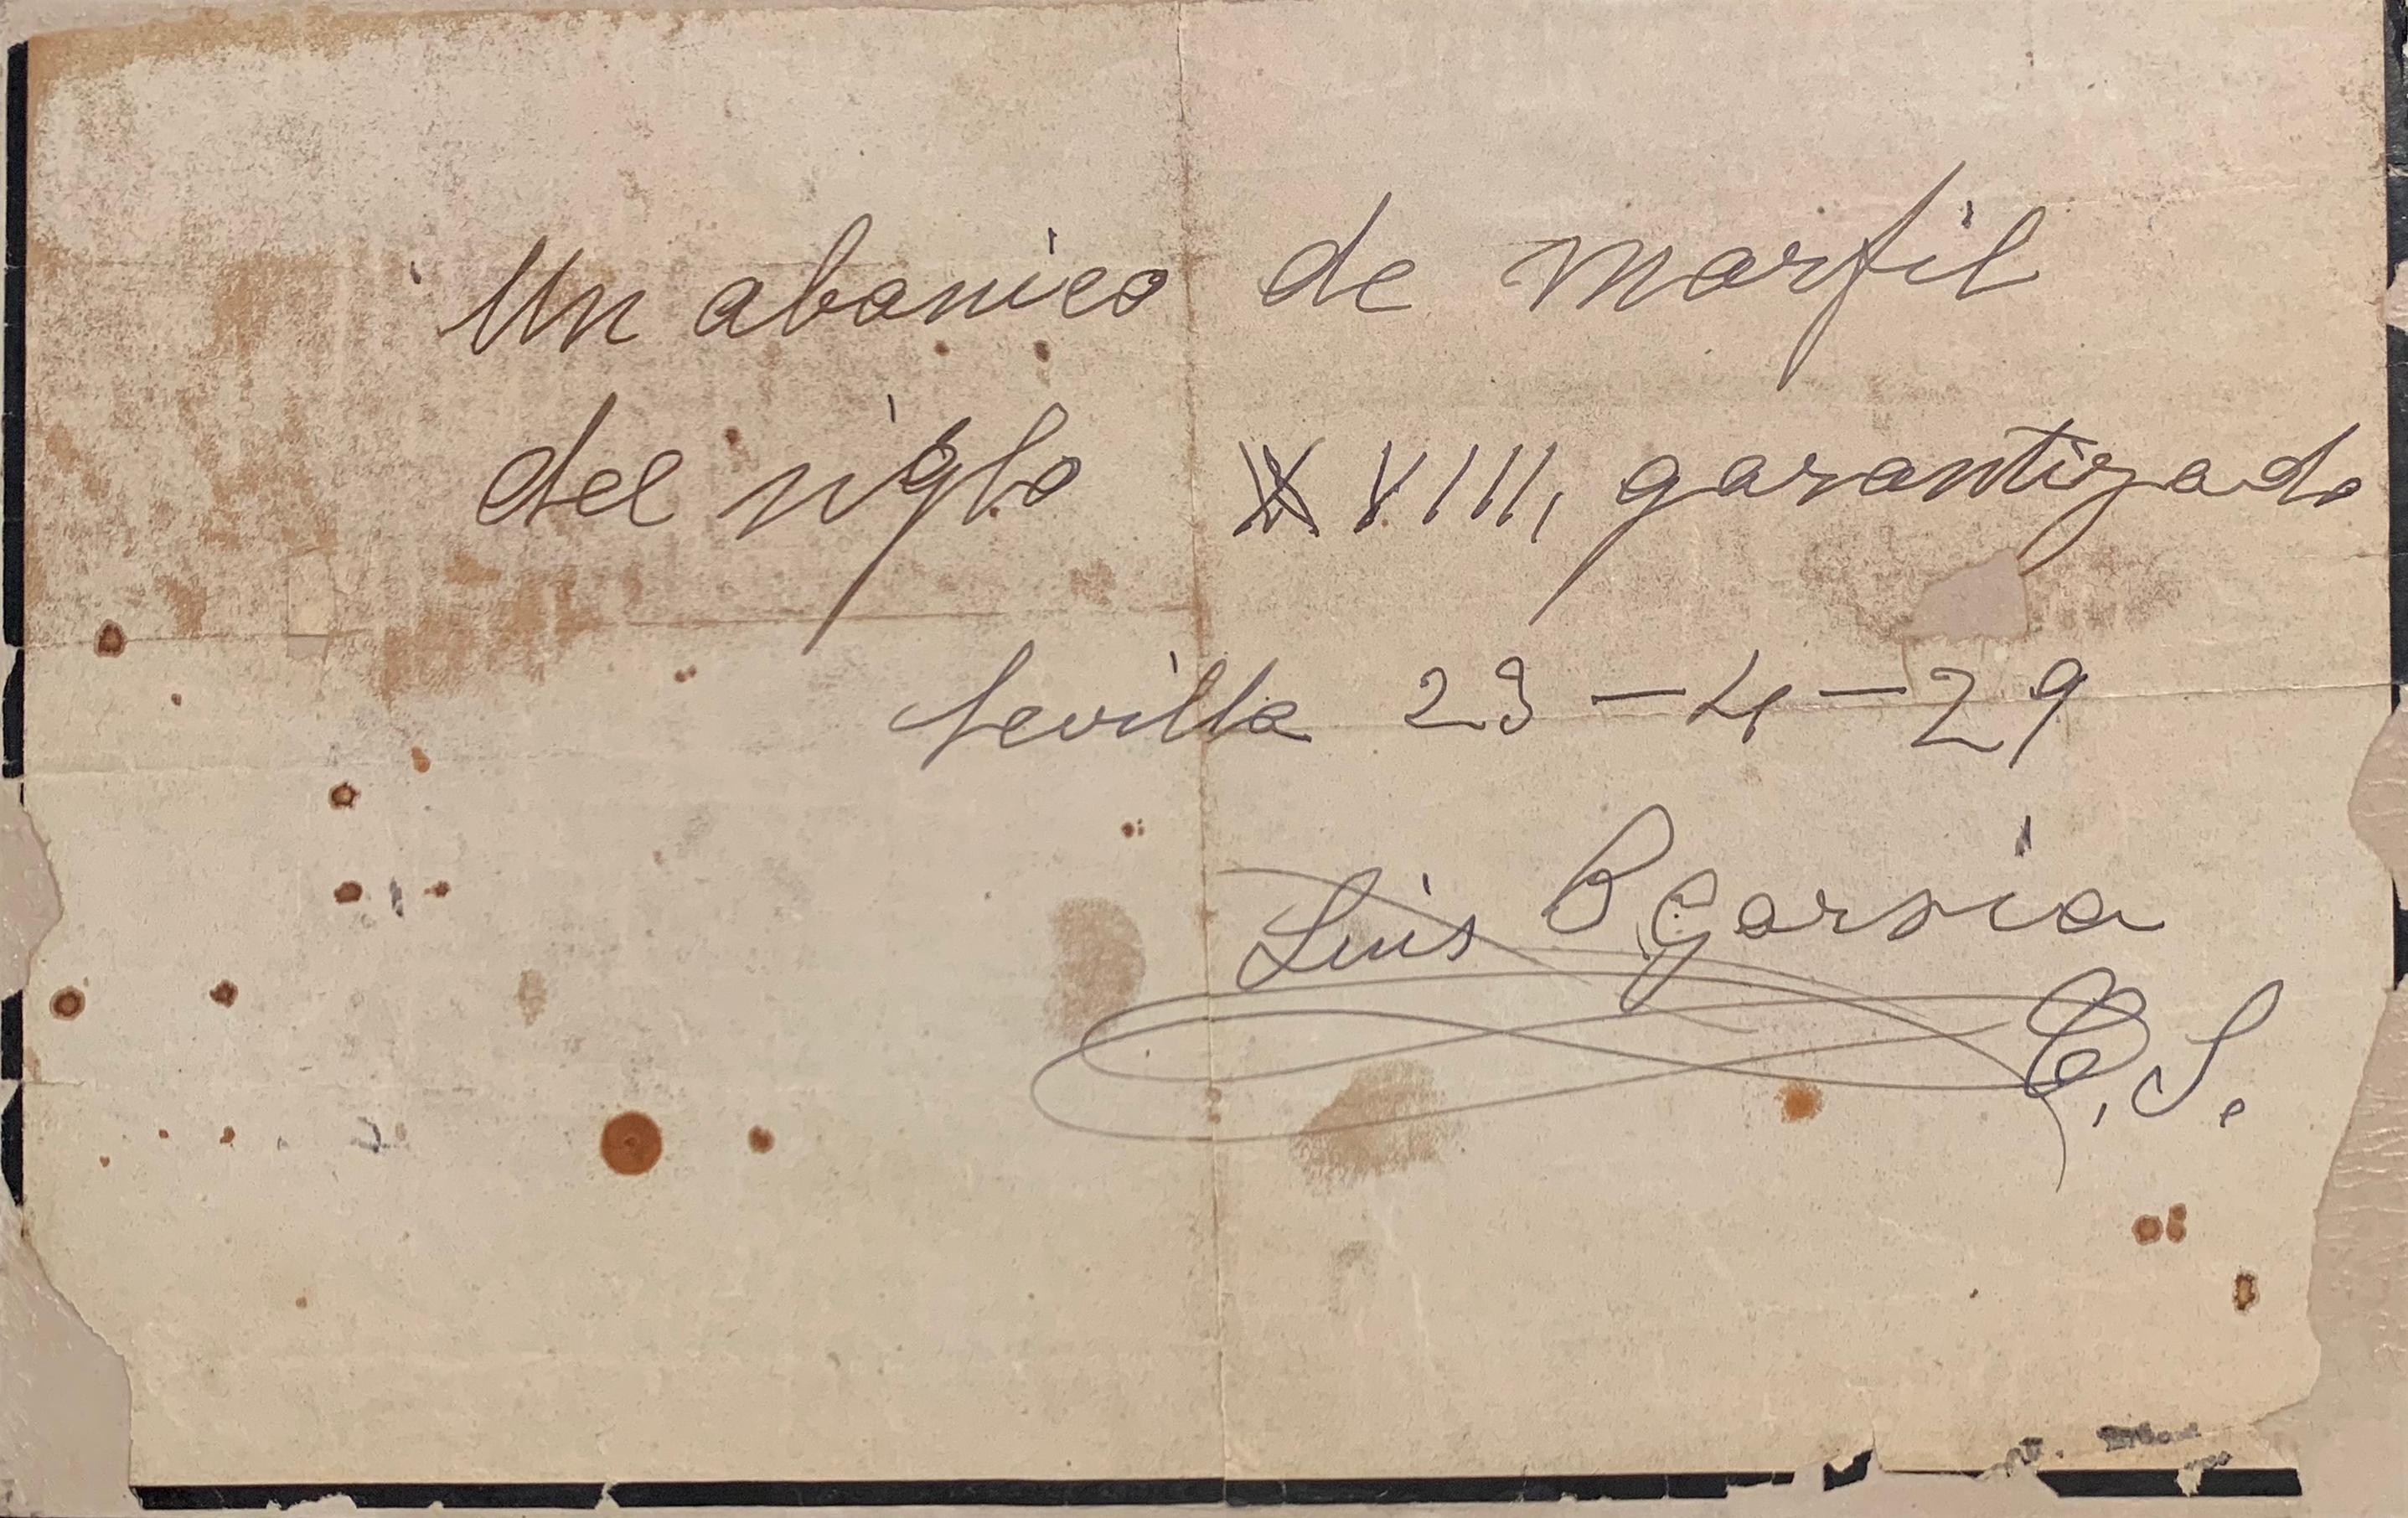 Un abanico de marfil
del siglo XVIII, garantizado
Sevilla 23-4-29
Luis B Garsia
C. S.